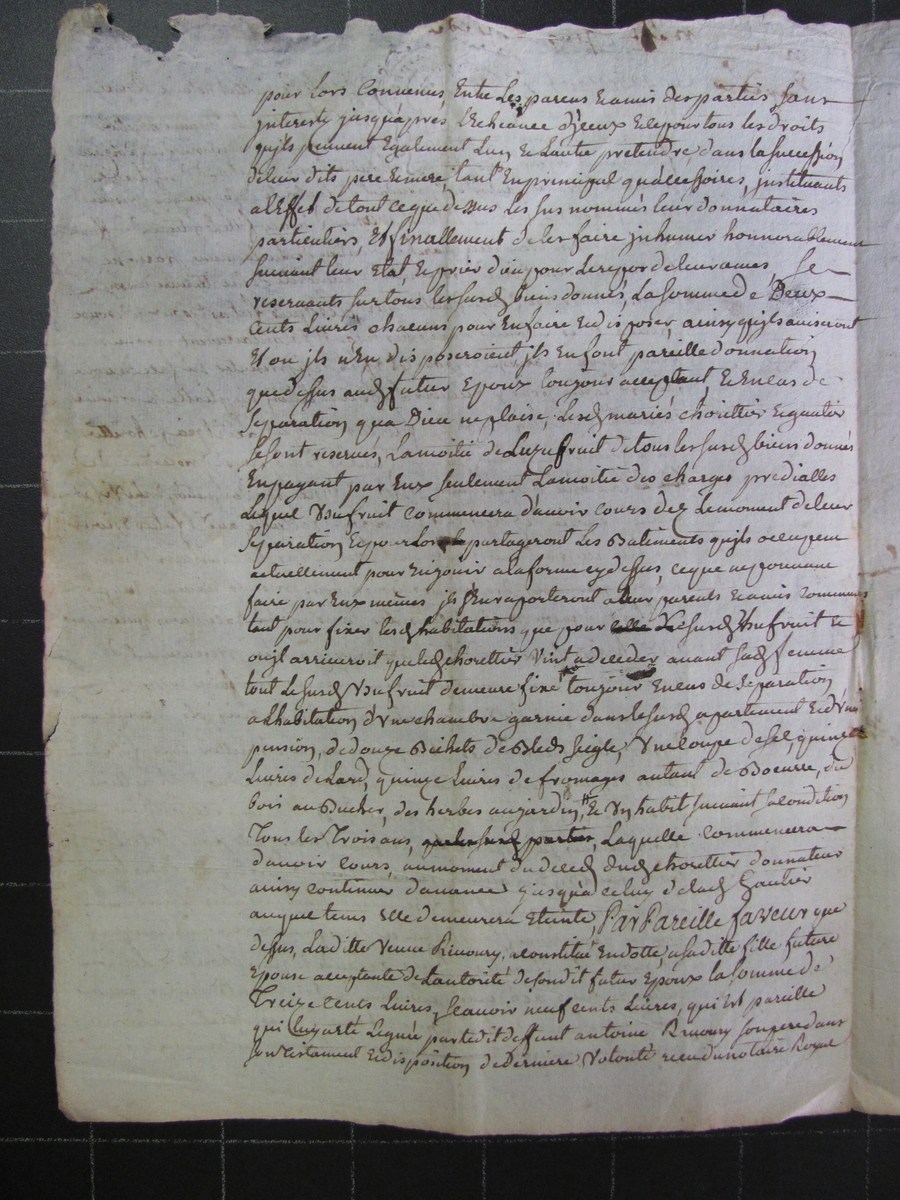 pour lors Convenües Entre les parens Et amis des parties sans
interets jusquàprés l'Echéance d'jceux Et ce pour tous les droits
qu'jls peuvent Egalement Lun Et Lautre pretendre dans la succession
de leur dits pere Et mere, tant En principal qu'accessoires, jnstituants
a l'Effet de tout ce que dessus les sus nommés leur donnataires
particuliers, Et finallement de les faire jnhumer honnorablement
suivant leur Etat Et prier dieu pour Le repos de leur ames, Se
reservants sur tous les susd biens donnés, La somme de Deux
Cents Livres chacuns pour En faire Et disposer, ainsy qu'jls aviseront
Et ou jls n'En disposeroient, jls En font pareille donnation
que dessus aud futur Epoux toujour acceptant, Et En cas de
Séparation, qua Dieu ne plaise, Les d mariés chorettier Et gautier
se sont reservés, La moitié de Luzufruit de tous les susd biens donnés
En payant par Eux seulement La moitié des charges prédialles
Lequel Usufruit commencera d'avoir cours dez Le moment de leur
Séparation Et pour Lors partageront Les Batiments qu'jls occupent
actuellement pour En jouir a la forme cy dessus, ce que ne pouvant
faire par Eux mêmes jls s'En raporteront a leur parents Et amis communs
tant pour fixer lesd habitations que pour Le susd Usufruit Et
ou jl arriveroit que led chorettier Vint a deceder avant sad femme
tout Le susd Usufruit demeure fixé toujour En cas de Séparation
a L'habitation d'Une chambre garnie dans le susd apartement Et d'Une
pension, de douze Bichets de Bled seigle, Une coupe de sel, quinze
Livres de Lard, quinze Livres de fromages autant de Boeurre, du
bois au Bucher, des herbes au jardin, Et Un habit suivant sa condition
Tous les Trois ans, par les susd parties, Laquelle commencera
d'avoir cours, au moment du deced dud chorettier donnateur
ainsy continuer d'avance jusqu'a celuy de lad Gautier
auquel tems Elle demeurera Eteinte, Par Pareille faveur que
dessus, Laditte Veuve Rimoury, a constitué En dotte, a saditte fille future
Epouse acceptante de L'autorité de son dit futur Epoux la somme de
Treize cents Livres, Scavoir neuf cents Livres, qui Est pareille
qui Luy a été Leguée par ledit deffunt antoine Rimoury son pere dans
son Testament Et disposition de Derniere Volonté reçu du notaire Royal